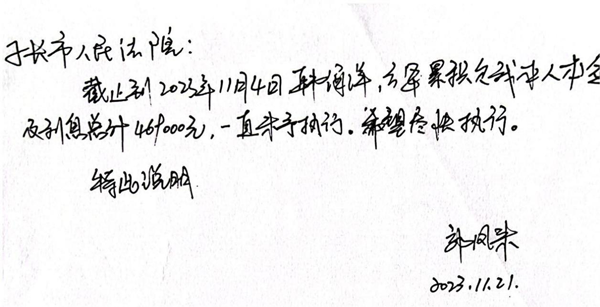 子长市人民法院：
截止到2023年11月4日韩海洋，方军累积欠我本人本金
及利息总计469000元，一直未予执行。希望尽快执行。
特此说明
郭凤荣
2023.11.21.